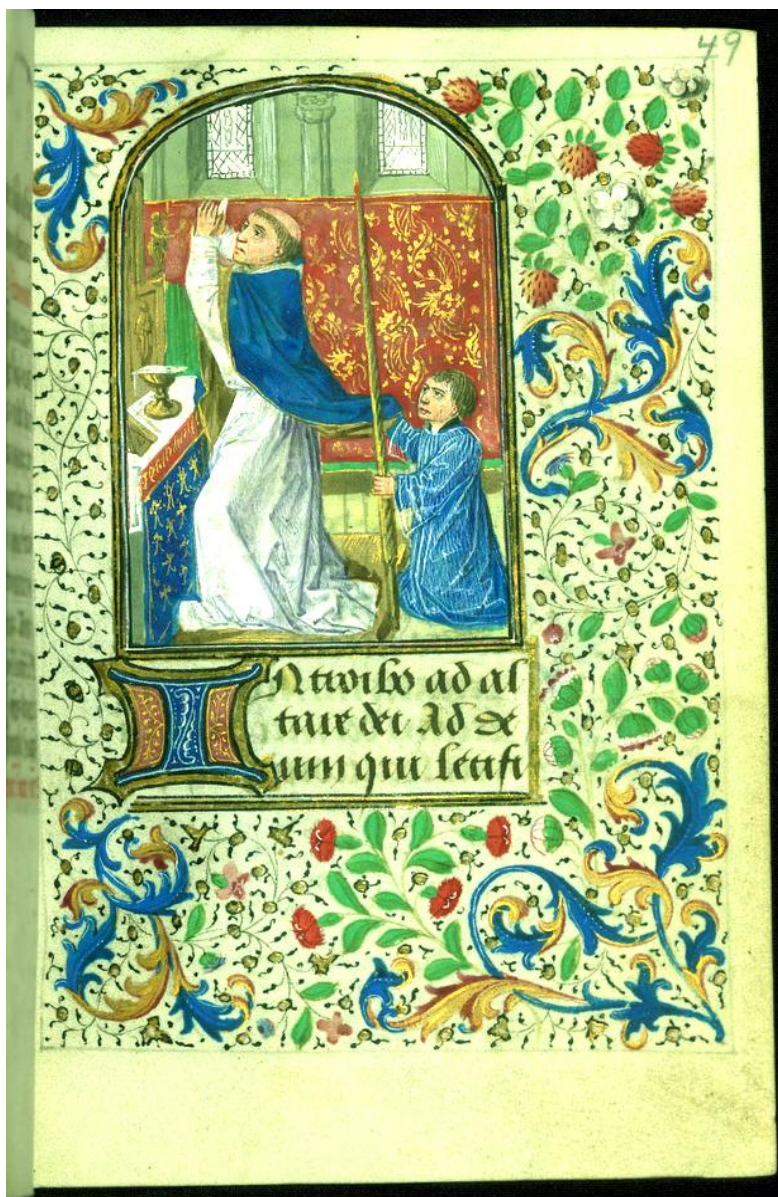 49
INtroibo ad al
tare dei Ad de
um qui letifi